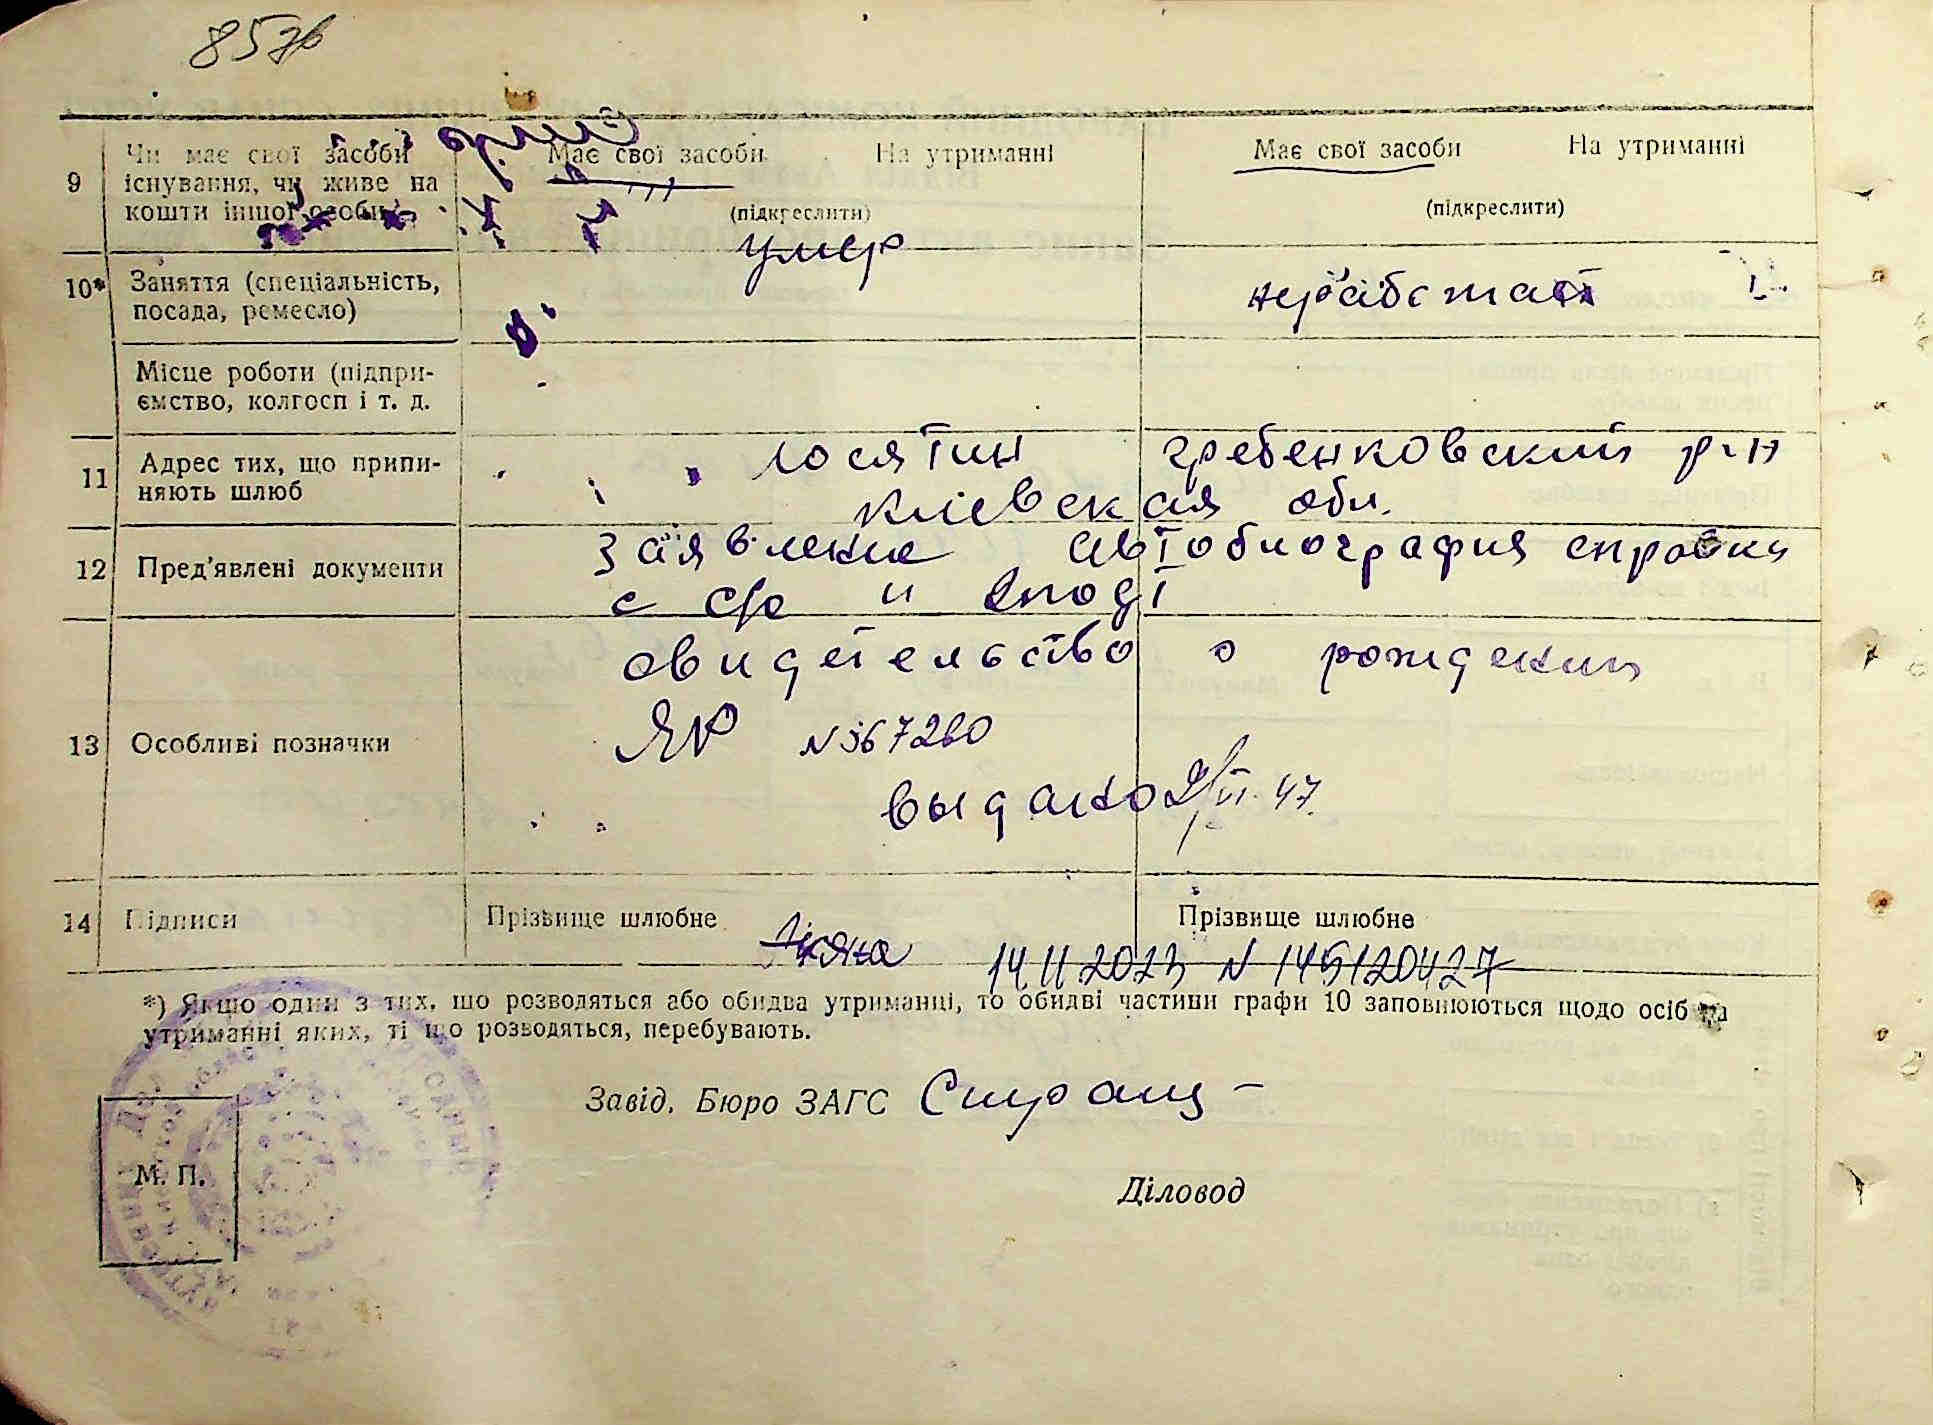 857в
9 Чи має свої засоби Має свої засоби На утриманні Має свої засоби На утриманні
існування, чи живе на
кошти іншої особи (підкреслити) (підкреслити)
умер
10* Заняття (спеціальність,
посада, ремесло)
Місце роботи (підпри-
ємство, колгосп і т. д.
11 Адрес тих, що припи- Лосятин Гребенковский р-н
няють шлюб Киевская обл.
12 Пред'явлені документи Заявление автобиография справки
с с/с и
свидетельство о рождении
13 Особливі позначки ЯР N 367260
выдано 2/VI. 47.
14 Підписи Прізвище шлюбне Прізвище шлюбне
14 11 2023 N 145120427
*) Якщо один з тих, що розводяться або обидва утриманці, то обидві частини графи 10 заповнюються щодо осіб на
утриманні яких, ті що розводяться, перебувають.
Завід. Бюро ЗАГС
М. П.
Діловод